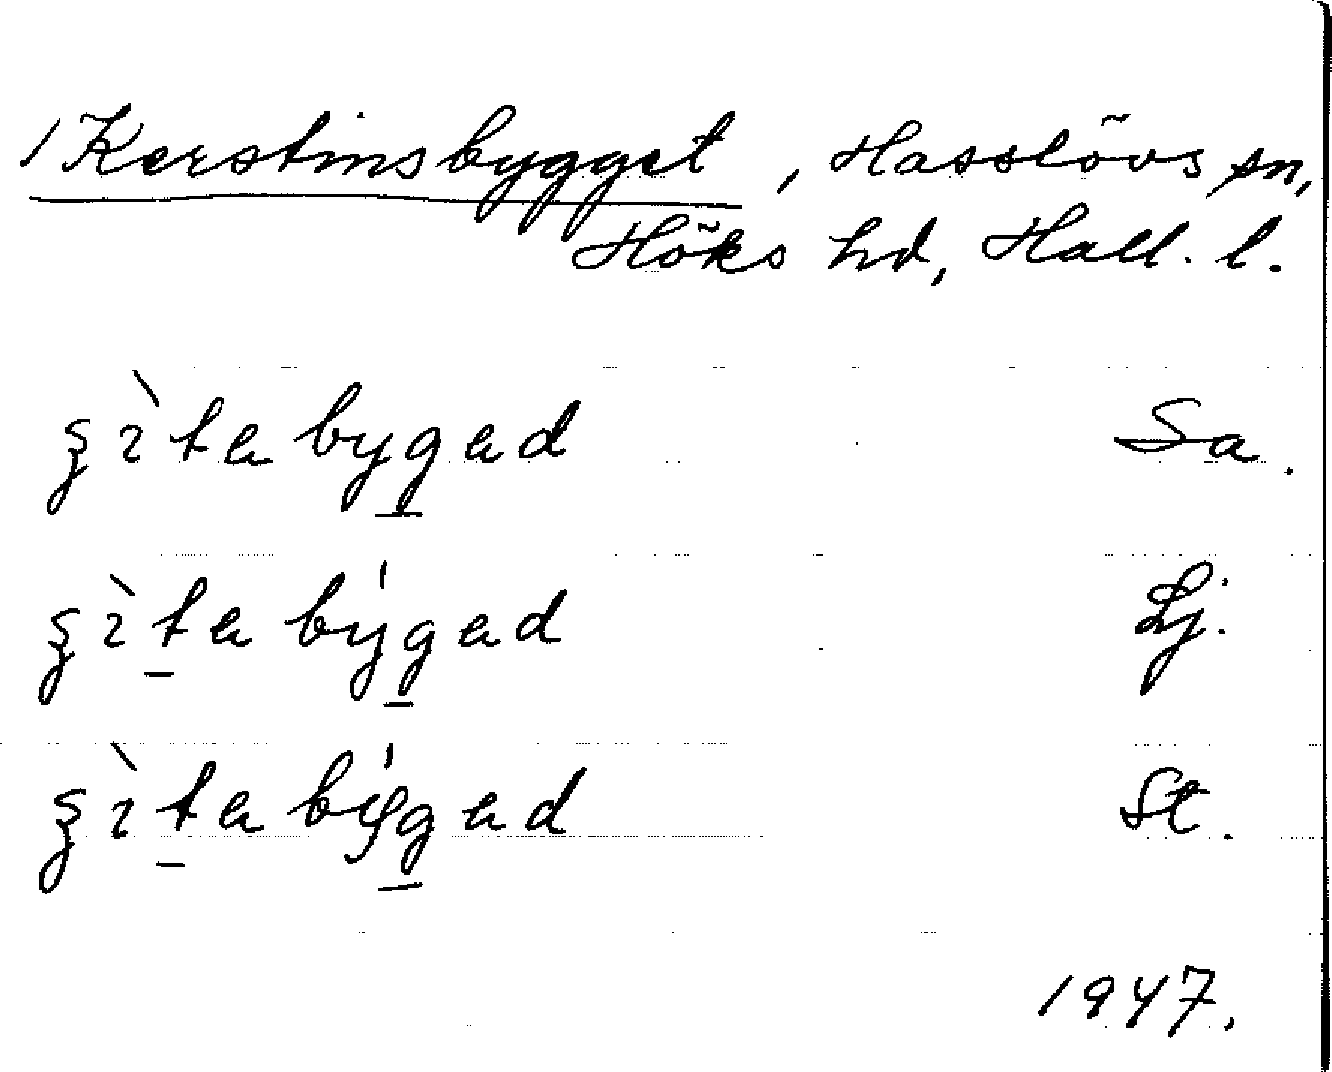 /Kerstinsbygget, Hasslövs sn,
Höks hd, Hall. l.
ʂìta bygad Sa.
ʂìta býgad Lj.
ʂìta býgad St.
1947.